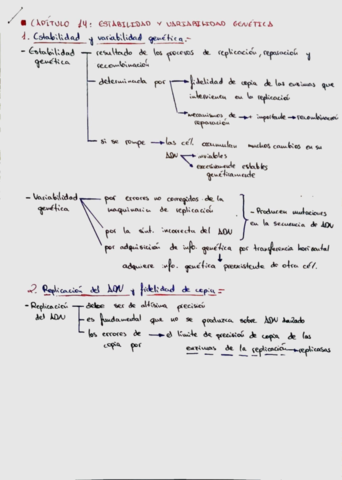 CAPÍTULO 14: ESTABILIDAD Y VARIABILIDAD GENÉTICA
1. Estabilidad y variabilidad genética.-
- Estabilidad genética
resultado de los procesos de replicación, reparación y
recombinación
determinada por
fidelidad de copia de las enzimas que
intervienen en la replicación
mecanismos de reparación → + importante → recombinación
si se rompe → las cél. acumulan muchos cambios en su
ADN → inviables
→ excesivamente estables
genéticamente
- Variabilidad genética
por errores no corregidos de la
maquinaria de replicación
por la sínt. incorrecta del ADN
- Producen mutaciones
en la secuencia de ADN
por adquisición de info. genética por transferencia horizontal
adquiere info. genética preexistente de otra cél.
2. Replicación del ADN y fidelidad de copia.-
- Replicación del ADN
debe ser de altísima precisión
es fundamental que no se produzca sobre ADN dañado
los errores de copia por → el límite de precisión de copia de las
enzimas de la replicación → replicasas